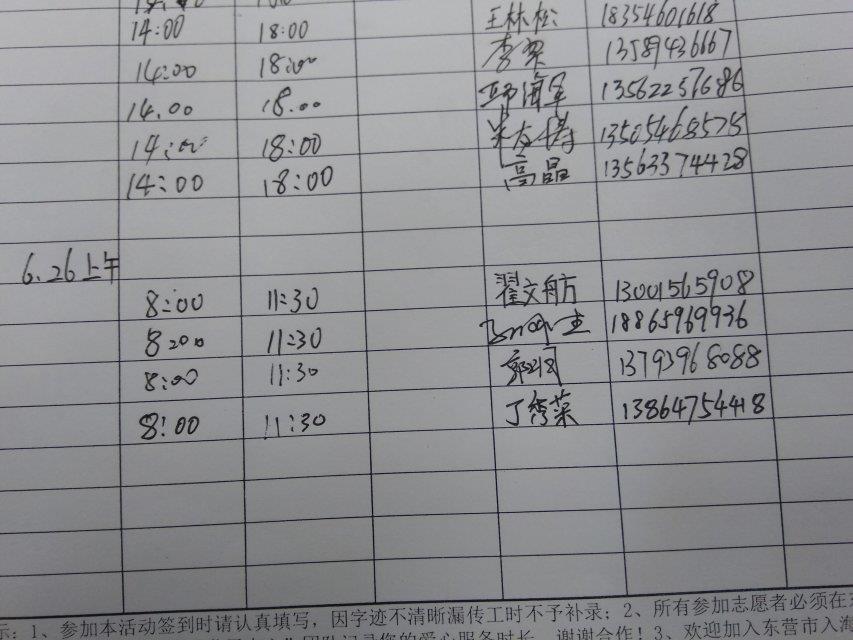 14:00 18:00 王林松 18354601618
14:00 18:00 李翠 13589436667
14.00 18.00 13562257686
14:00 18:00 13505468575
14:00 18:00 高晶 13563374428
6.26上午
8:00 11:30 翟文舫 13001565908
8:00 11:30 18865969936
8:00 11:30 13793968088
8:00 11:30 丁秀菜 13864754418
示：1、参加本活动签到时请认真填写，因字迹不清晰漏传工时不予补录；2、所有参加志愿者必须在
团队记录您的爱心服务时长，谢谢合作！3、欢迎加入东营市入海